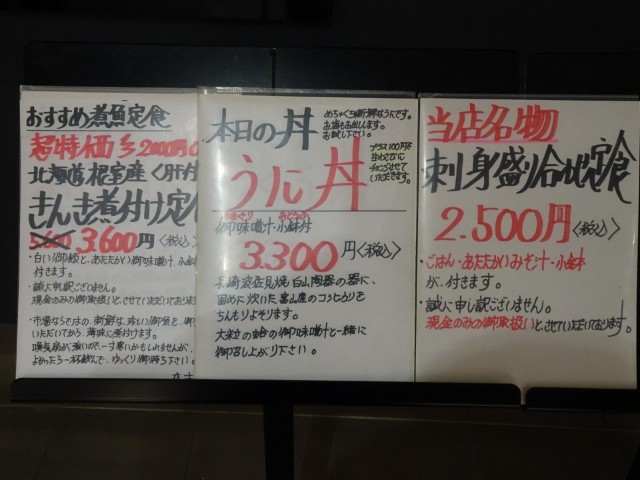 おすすめ煮魚定食
超特価
2000円
北海道根室産〈肝付
きんき煮付け定
5.600 3.600円〈税込〉
・白い御飯と、あたたかい御味噌汁、小鉢
付きます。
・誠に申し訳ございません。
現金のみの御取扱いとさせていただいておりま
・市場ならではの、新鮮な、珍しい御魚を、御
いただいてから、薄味に煮付けます。
換気扇が強いので一寸寒いかもしれませんが、
よかったら一杯飲んで、ゆっくり御待ち下さい。
本日の丼
めちゃくちゃ新鮮なうにです。
お味をお出しします。
お試し下さい。
プラス100円で
うに丼
御味噌汁・小鉢付
3.300円〈税込〉
長崎波佐見焼 白山陶器の器に、
固めに炊いた富山産のコシヒカリを
ちんもりよそります。
大粒の蛤の御味噌汁と一緒に
御召し上がり下さい。
当店名物
刺身盛り合わせ定食
2.500円〈税込〉
・ごはん・あたたかいみそ汁・小鉢
が、付きます。
・誠に申し訳ございません。
現金のみの御取扱いとさせていただいております。